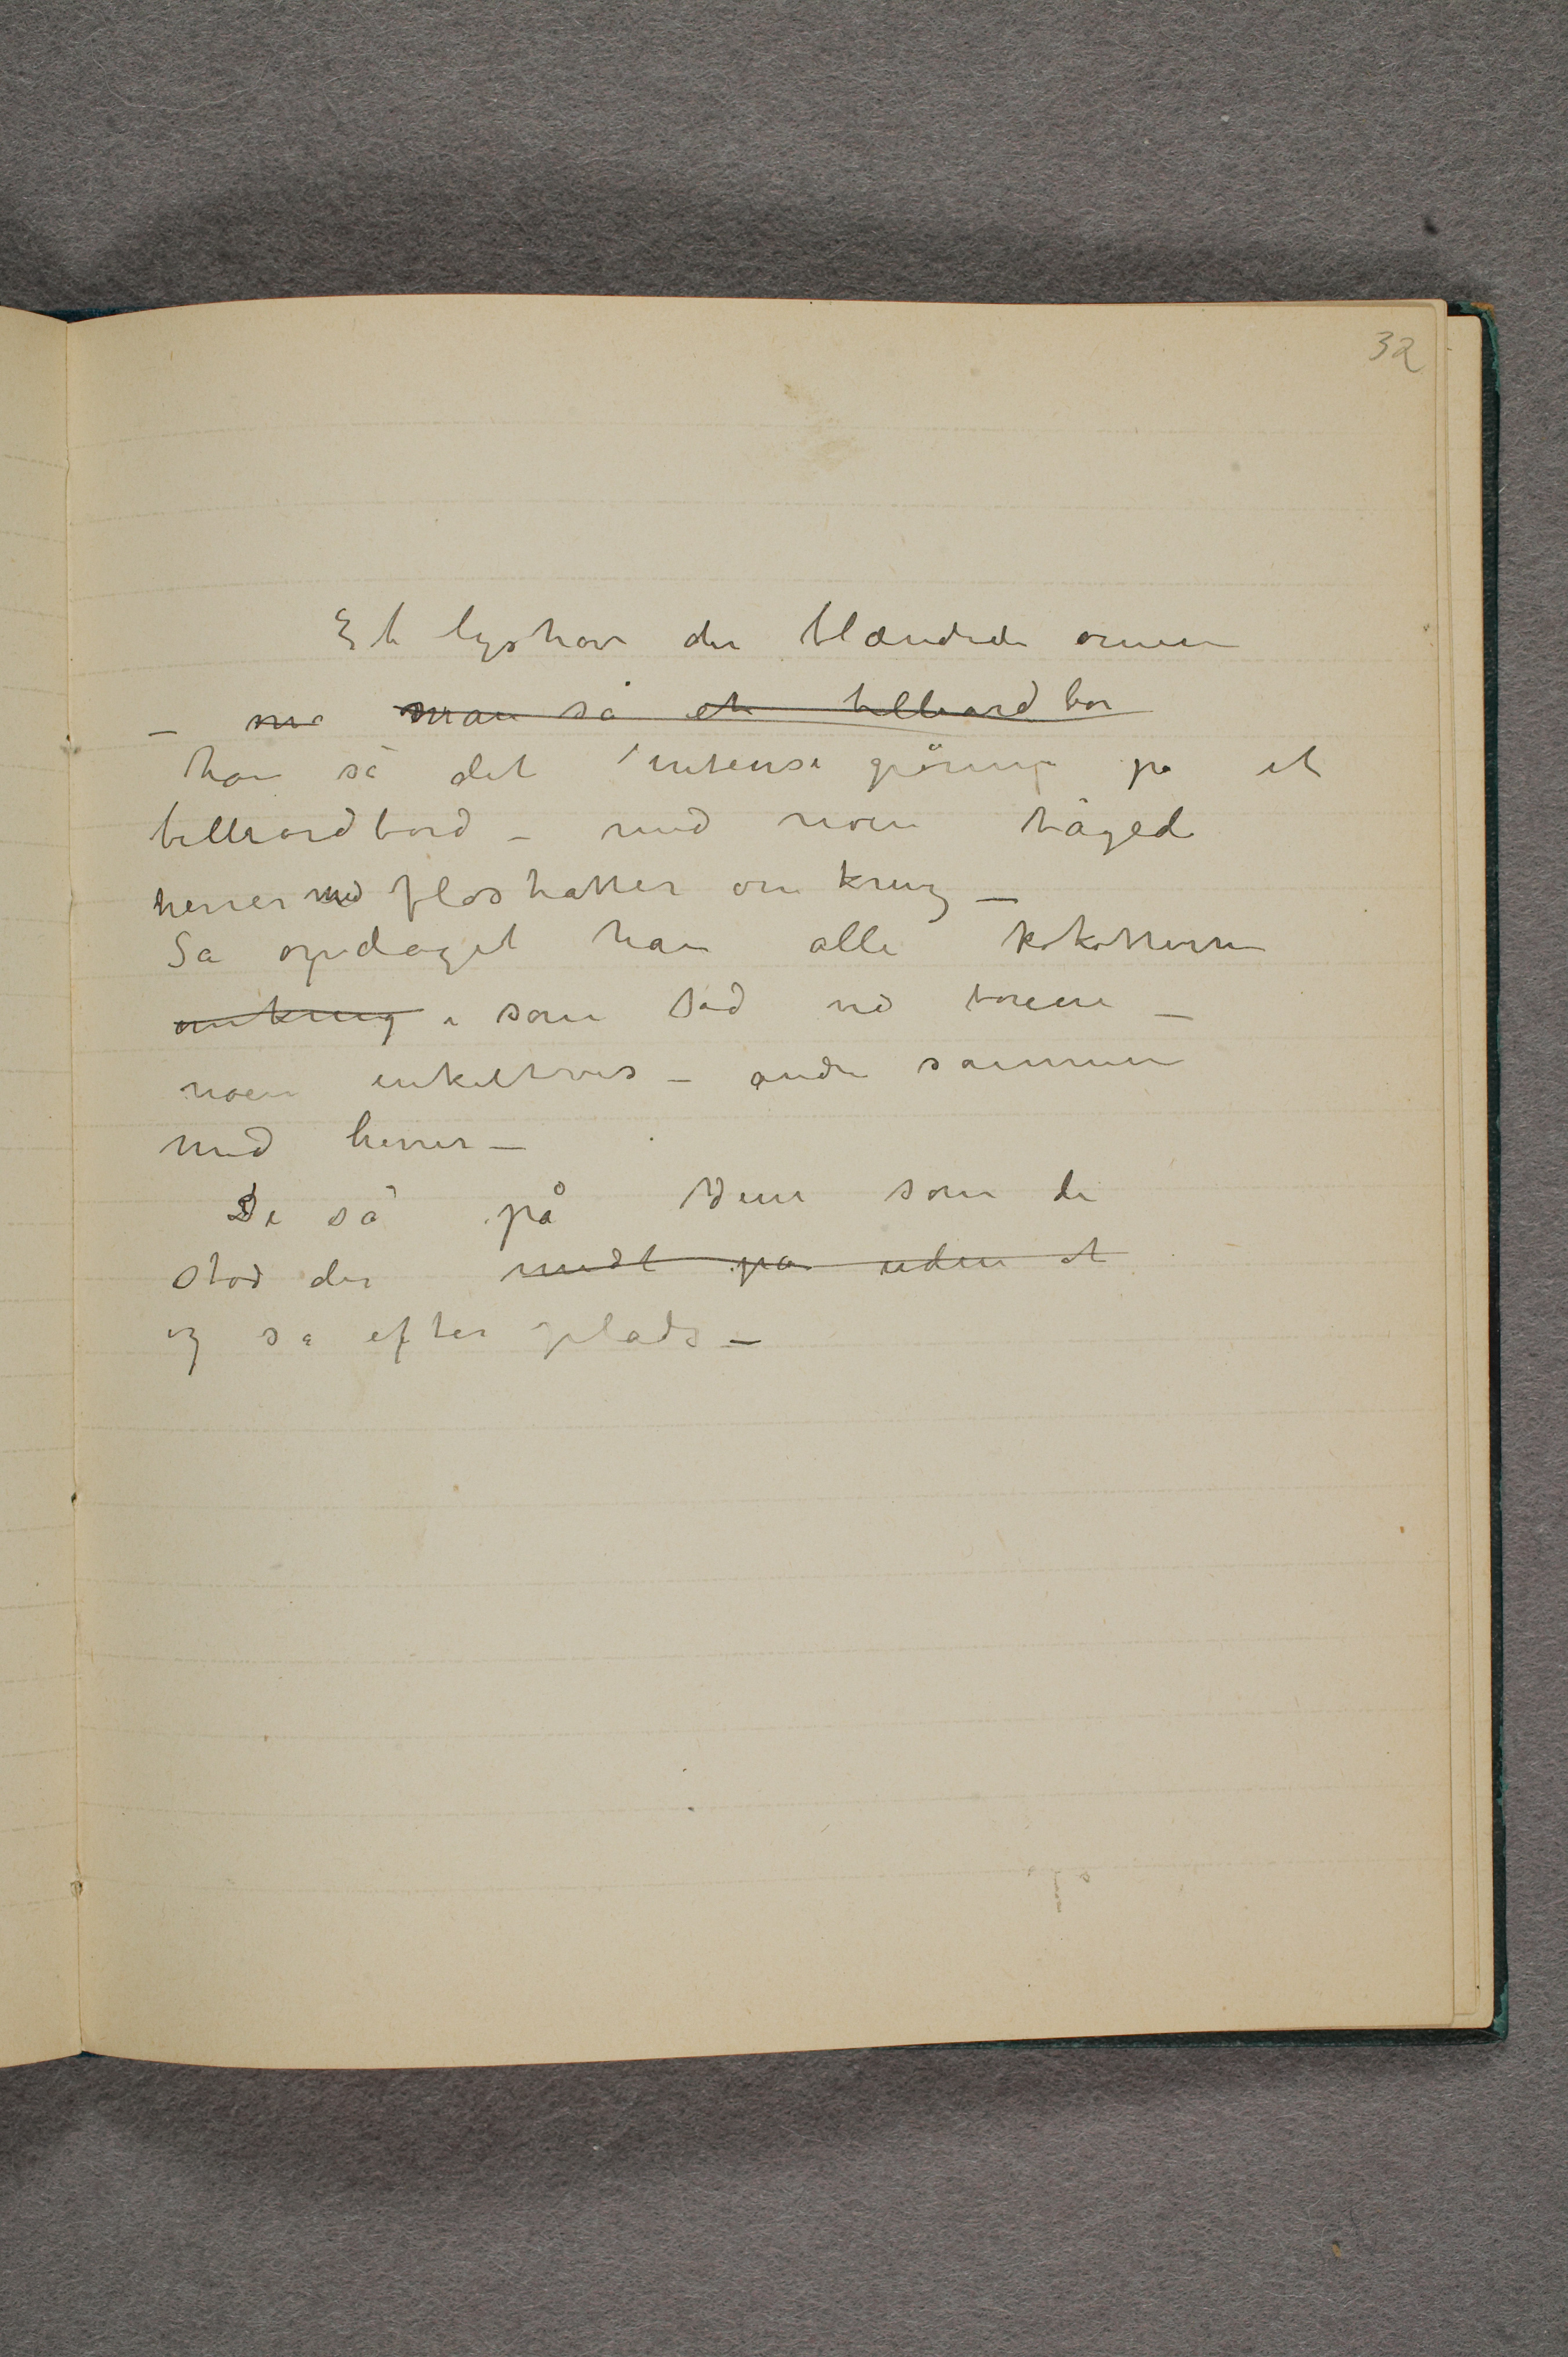 32
Et lyshav der blændede øinene
– ma man så et billiardbor
han så det intense grönne på et
billiardbord – med noen tågede
herrer med floshatter omkring –
Så opdaget han alle kokotterne
omkring som sad ved borene –
noen enkeltvis – andre sammen
med herrer –
De så på dem som de
stod der midt på uden at
og så efter plads –